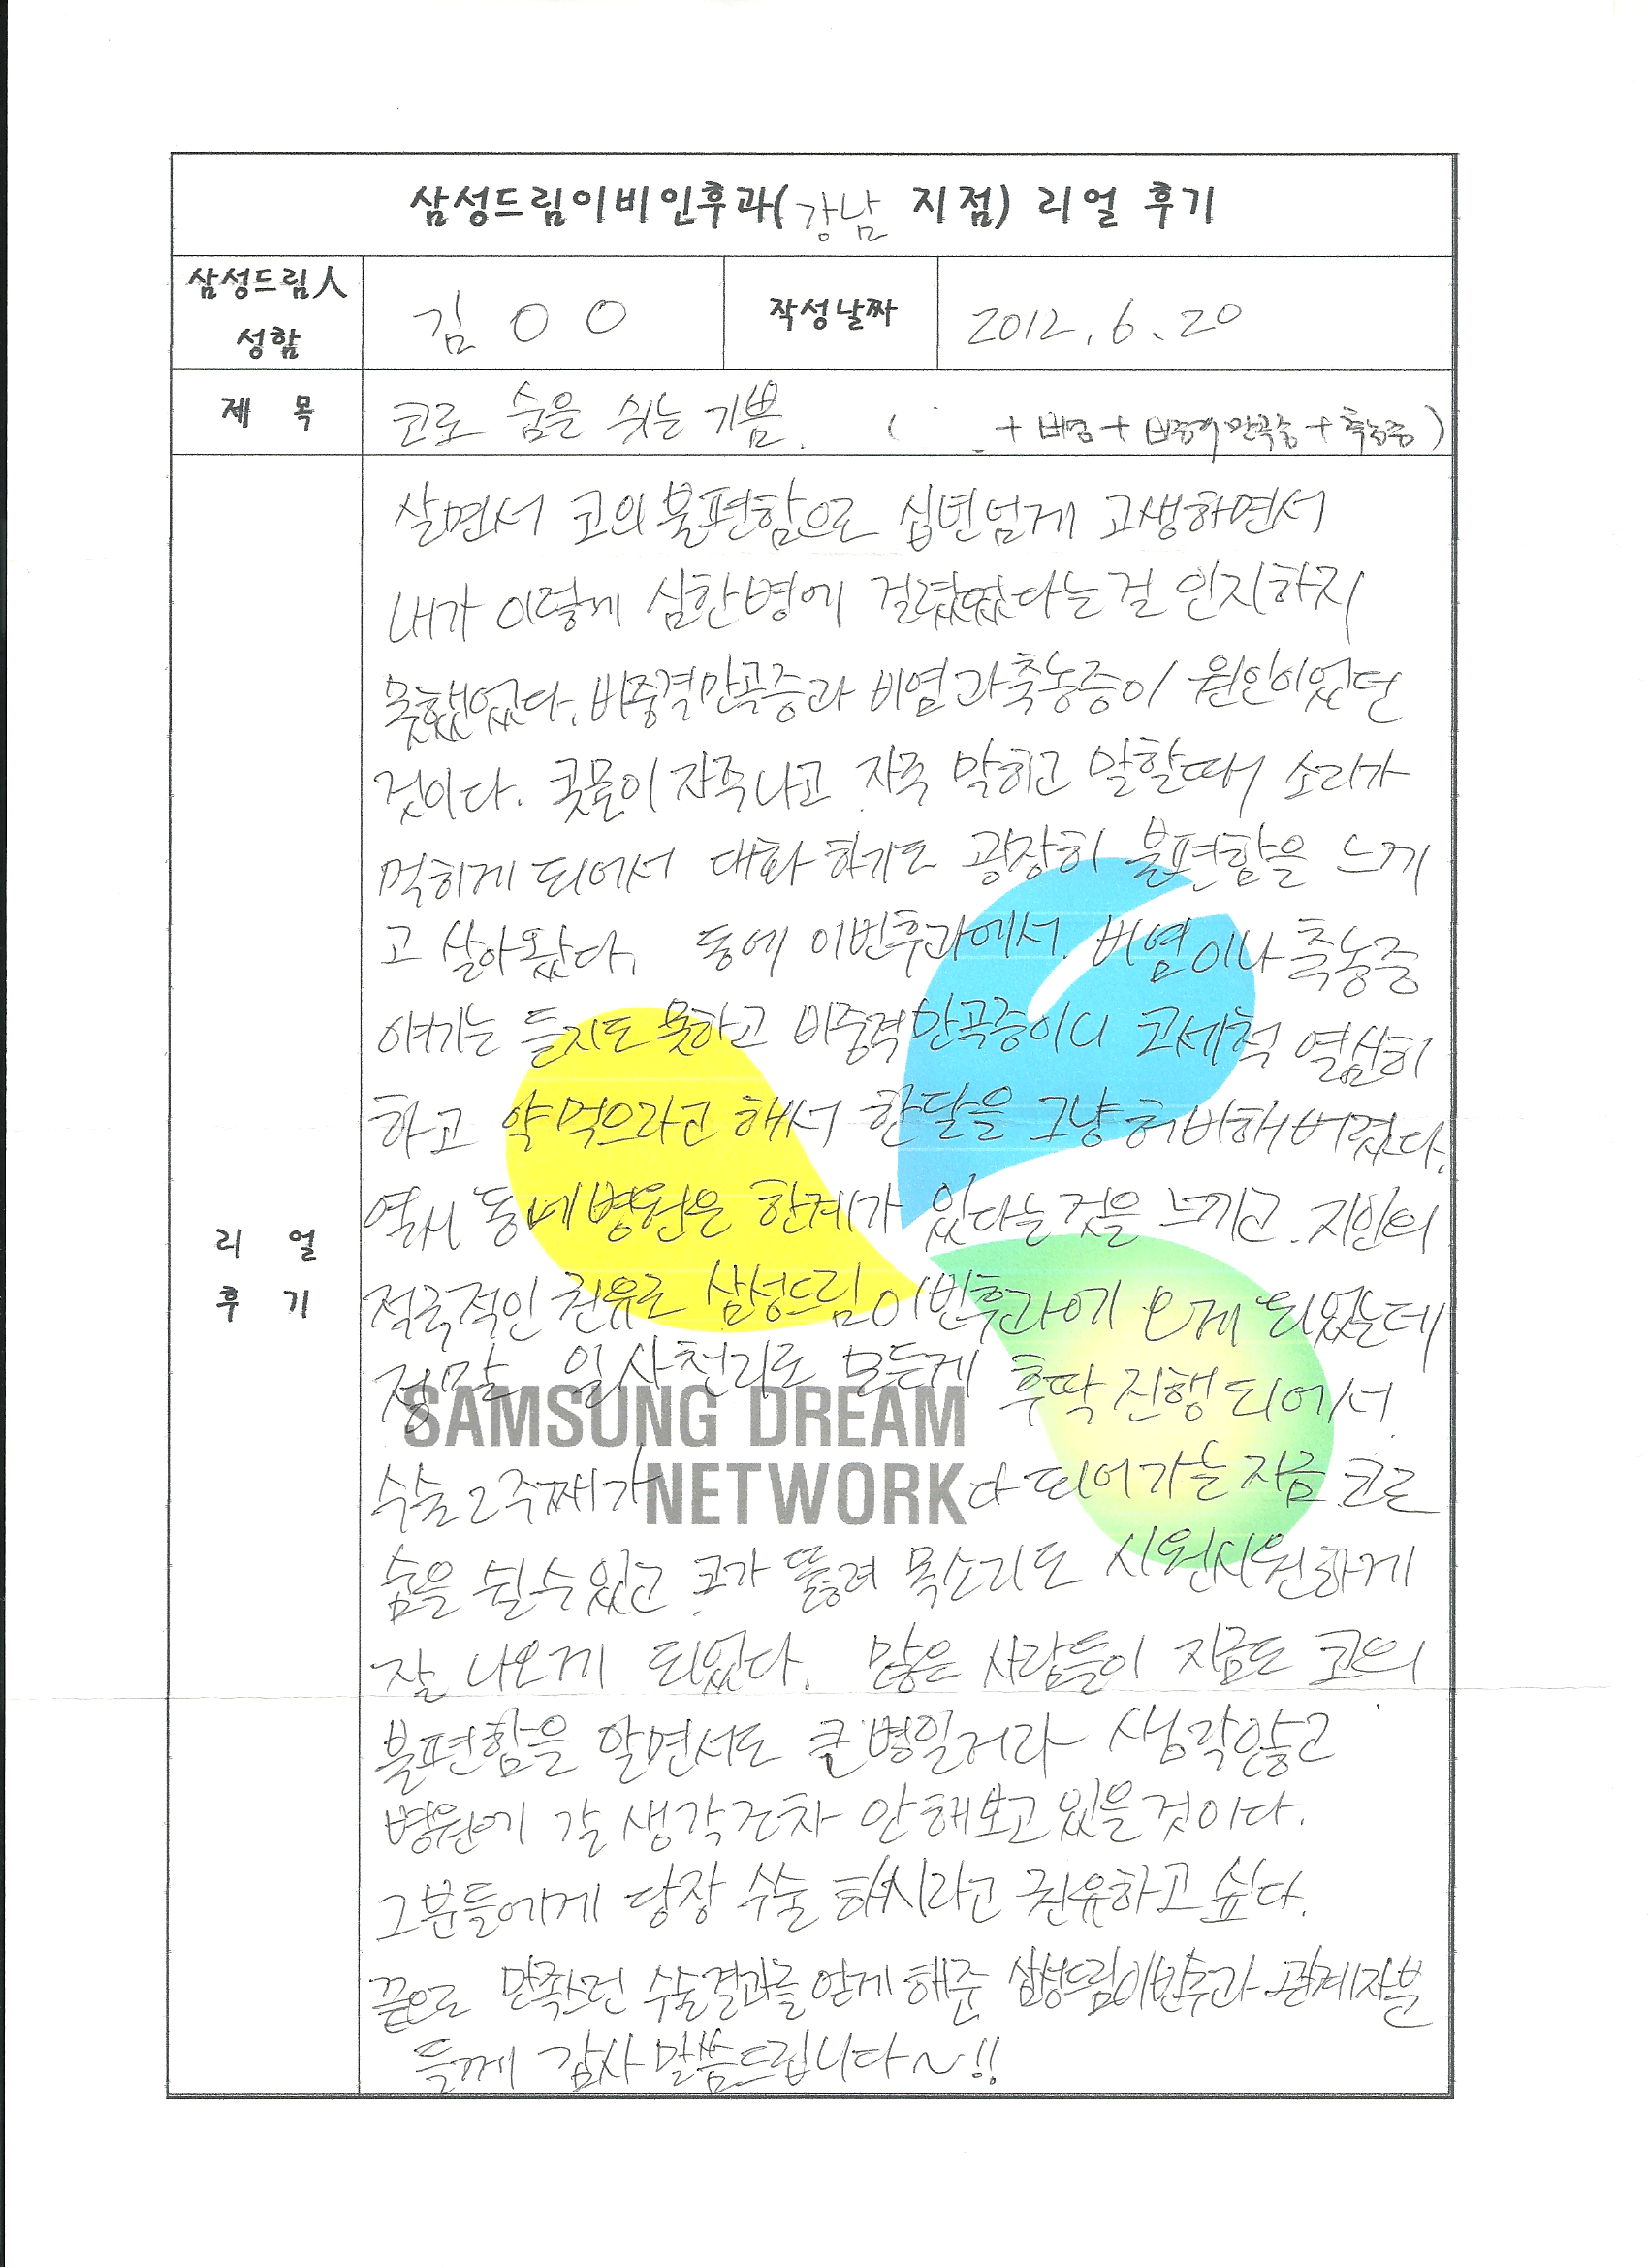 삼성드림이비인후과(강남 지점) 리얼 후기
삼성드림人
성함
김 ○ ○
작성날짜
2012. 6. 20
제 목
코로 숨을 쉬는 기쁨. ( + 비염 + 비중격만곡증 + 축농증)
리 얼
후 기
살면서 코의 불편함으로 십년넘게 고생하면서
내가 이렇게 심한병에 걸렸었다는걸 인지하지
못했었다. 비중격만곡증과 비염과 축농증이 원인이었던
것이다. 콧물이 자주나고 자주 막히고 말할때 소리가
먹히게 되어서 대화 하기도 굉장히 불편함을 느끼
고 살아왔다. 동에 이빈후과에서 비염이나 축농증
얘기는 듣지도 못하고 비중격만곡증이니 코세척 열심히
하고 약먹으라고 해서 한달을 그냥 허비해 버렸다.
역시 동네병원은 한계가 있다는것을 느끼고 지인의
적극적인 권유로 삼성드림이빈후과에 오게 되었는데
정말 일사천리로 모든게 후딱 진행되어서
수술2주째가 다 되어가는 지금 코로
숨을 쉴수있고 코가 뚫려 목소리도 시원시원하게
잘 나오게 되었다. 많은 사람들이 지금도 코의
불편함을 알면서도 큰병일거라 생각않고
병원에 갈 생각조차 안해보고 있을것이다.
그분들에게 당장 수술 하시라고 권유하고 싶다.
끝으로 만족스런 수술결과를 얻게 해준 삼성드림이빈후과 관계자분
들께 감사 말씀드립니다~!!
SAMSUNG DREAM
NETWORK